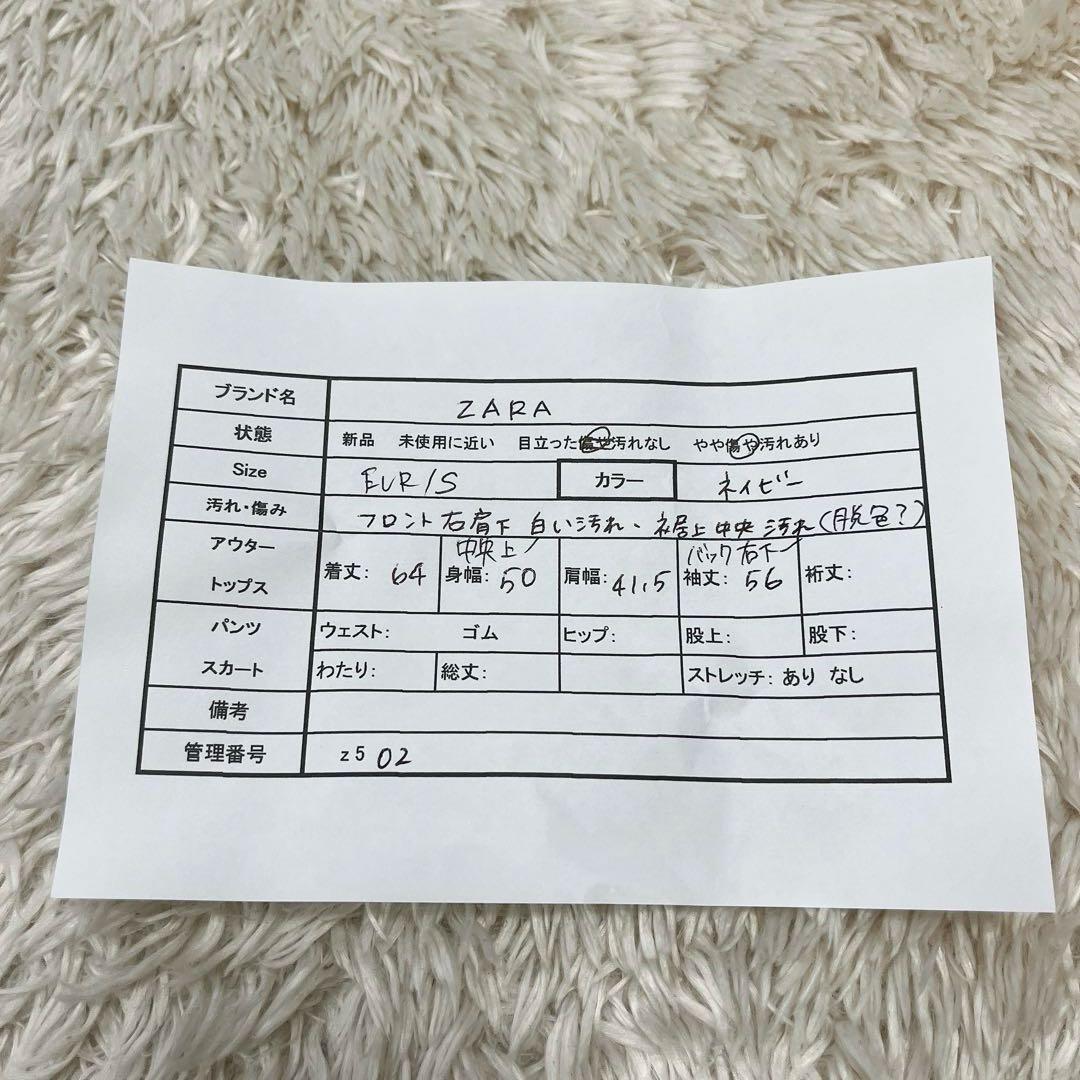 ブランド名 ZARA
状態 新品 未使用に近い 目立った傷や汚れなし やや傷や汚れあり
Size EUR/S カラー ネイビー
汚れ・傷み フロント右肩下 白い汚れ、裾上中央 汚れ(脱色?)
中央上 バック右下
アウター
トップス 着丈: 64 身幅: 50 肩幅: 41.5 袖丈: 56 裄丈:
パンツ ウェスト: ゴム ヒップ: 股上: 股下:
スカート わたり: 総丈: ストレッチ: あり なし
備考
管理番号 z5 02